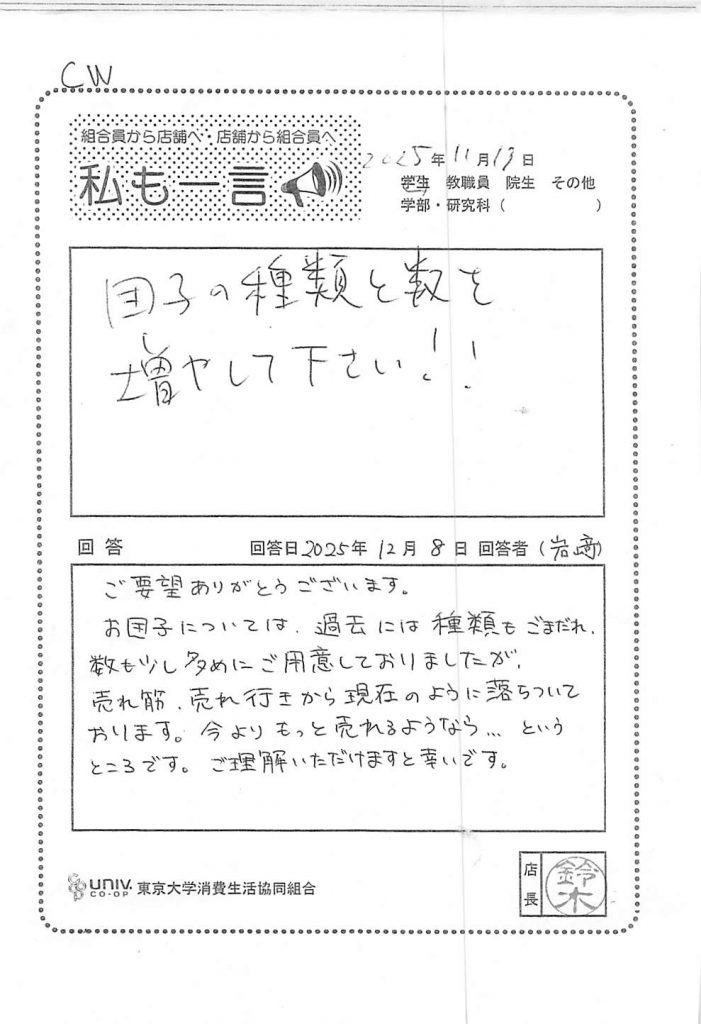 CW
組合員から店舗へ・店舗から組合員へ
私も一言
2025年11月19日
学生 教職員 院生 その他
学部・研究科（　　　）
団子の種類と数を
増やして下さい!!
回答 回答日2025年12月8日 回答者（岩﨑）
ご要望ありがとうございます。
お団子については、過去には種類もごまだれ、
数も少し多めにご用意しておりましたが、
売れ筋、売れ行きから現在のように落ちついて
おります。今よりもっと売れるようなら…という
ところです。ご理解いただけますと幸いです。
UNIV. CO-OP 東京大学消費生活協同組合
店長 鈴木